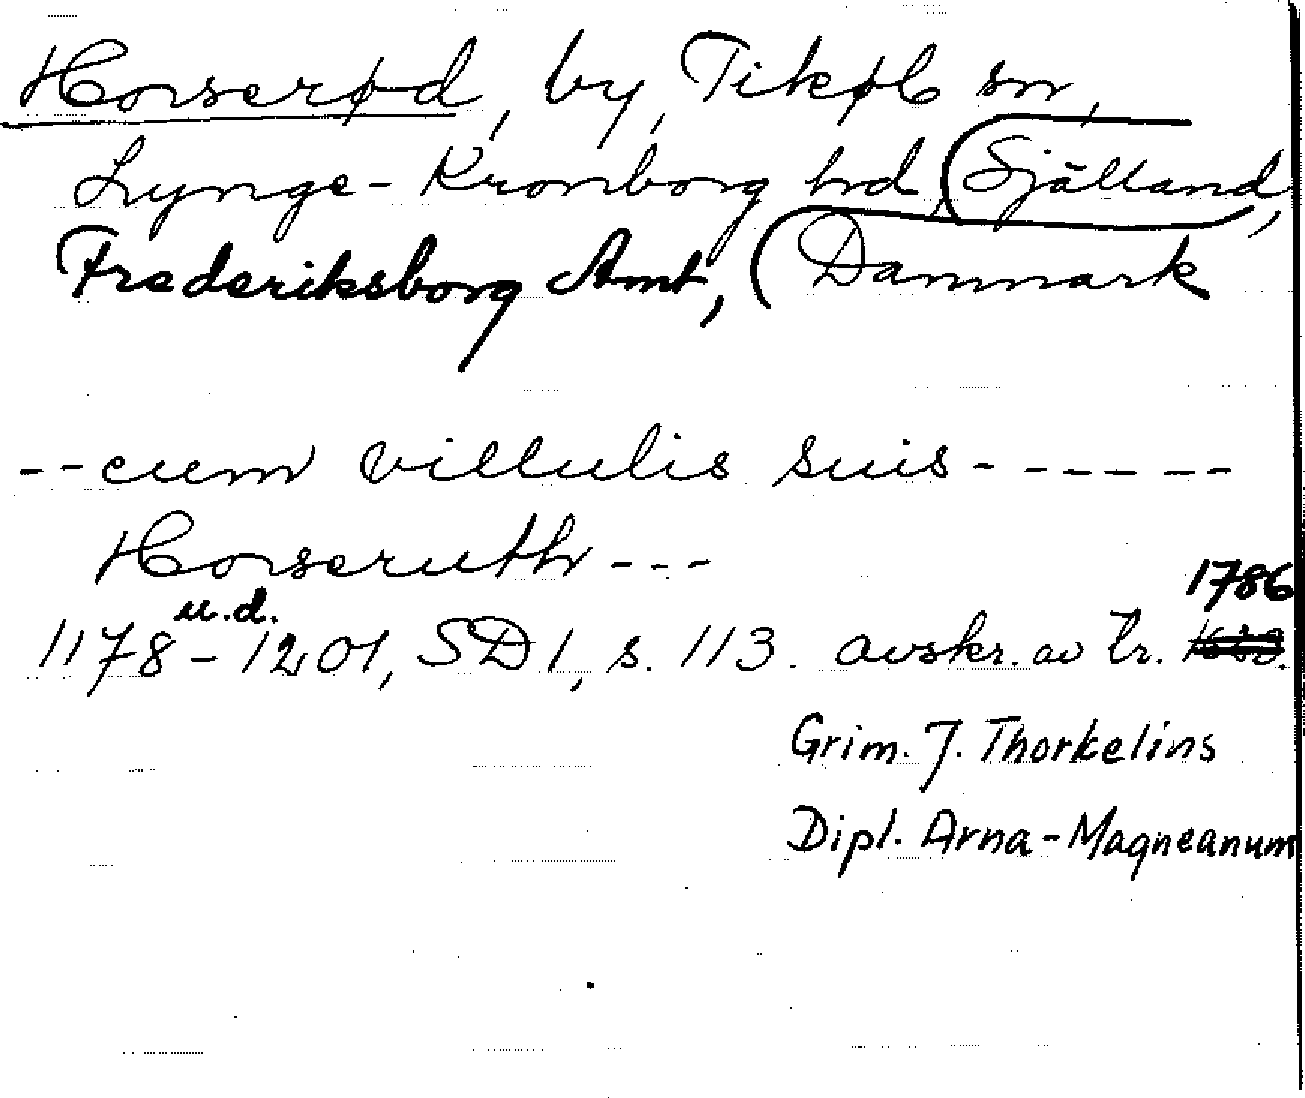 Horserød, by, Tikøb sn,
Lynge-Kronborg hd, (Själland,
Frederiksborg Amt, (Danmark
--cum villulis suis------
Horseruth---
u.d. 1786
1178-1201, SD 1, s. 113. avskr. av tr.
Grim. J. Thorkelins
Dipl. Arna-Magneanum